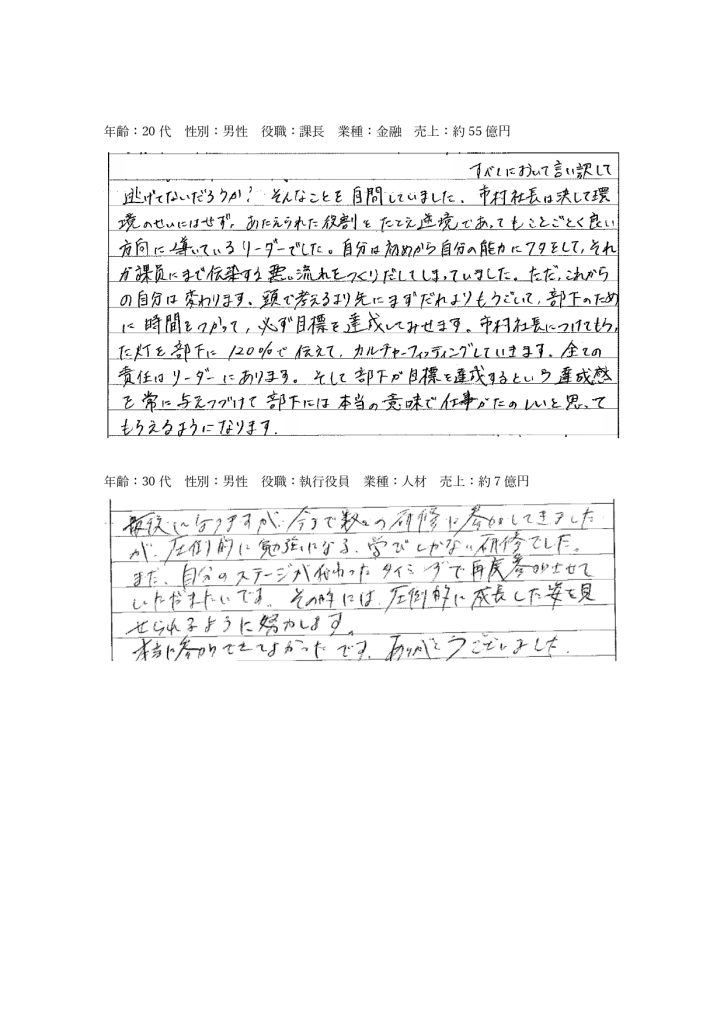 年齢：20代　性別：男性　役職：課長　業種：金融　売上：約55億円
すべてにおいて言い訳して
逃げてないだろうか？そんなことを自問していました。市村社長は決して環
境のせいにはせず、あたえられた役割をたとえ逆境であってもことごとく良い
方向に導いているリーダーでした。自分は初めから自分の能力にフタをして、それ
が課員にまで伝染する悪い流れをつくりだしてしまっていました。ただ、これから
の自分は変わります。頭で考えるより先にまずだれよりもうごいて、部下のため
に時間をつかって、必ず目標を達成してみせます。市村社長につけてもらっ
た灯を部下に120%で伝えて、カルチャーフィッティングしていきます。全ての
責任はリーダーにあります。そして部下が目標を達成するという達成感
を常に与えつづけて部下には本当の意味で仕事がたのしいと思って
もらえるようになります。
年齢：30代　性別：男性　役職：執行役員　業種：人材　売上：約7億円
最後になりますが、今まで数々の研修に参加してきました
が、圧倒的に勉強になる、学びしかない研修でした。
また、自分のステージが代わったタイミングで再度参加させて
いただきたいです。その時には、圧倒的に成長した姿を見
せられるように努力します。
本当に参加させてよかったです。ありがとうございました。